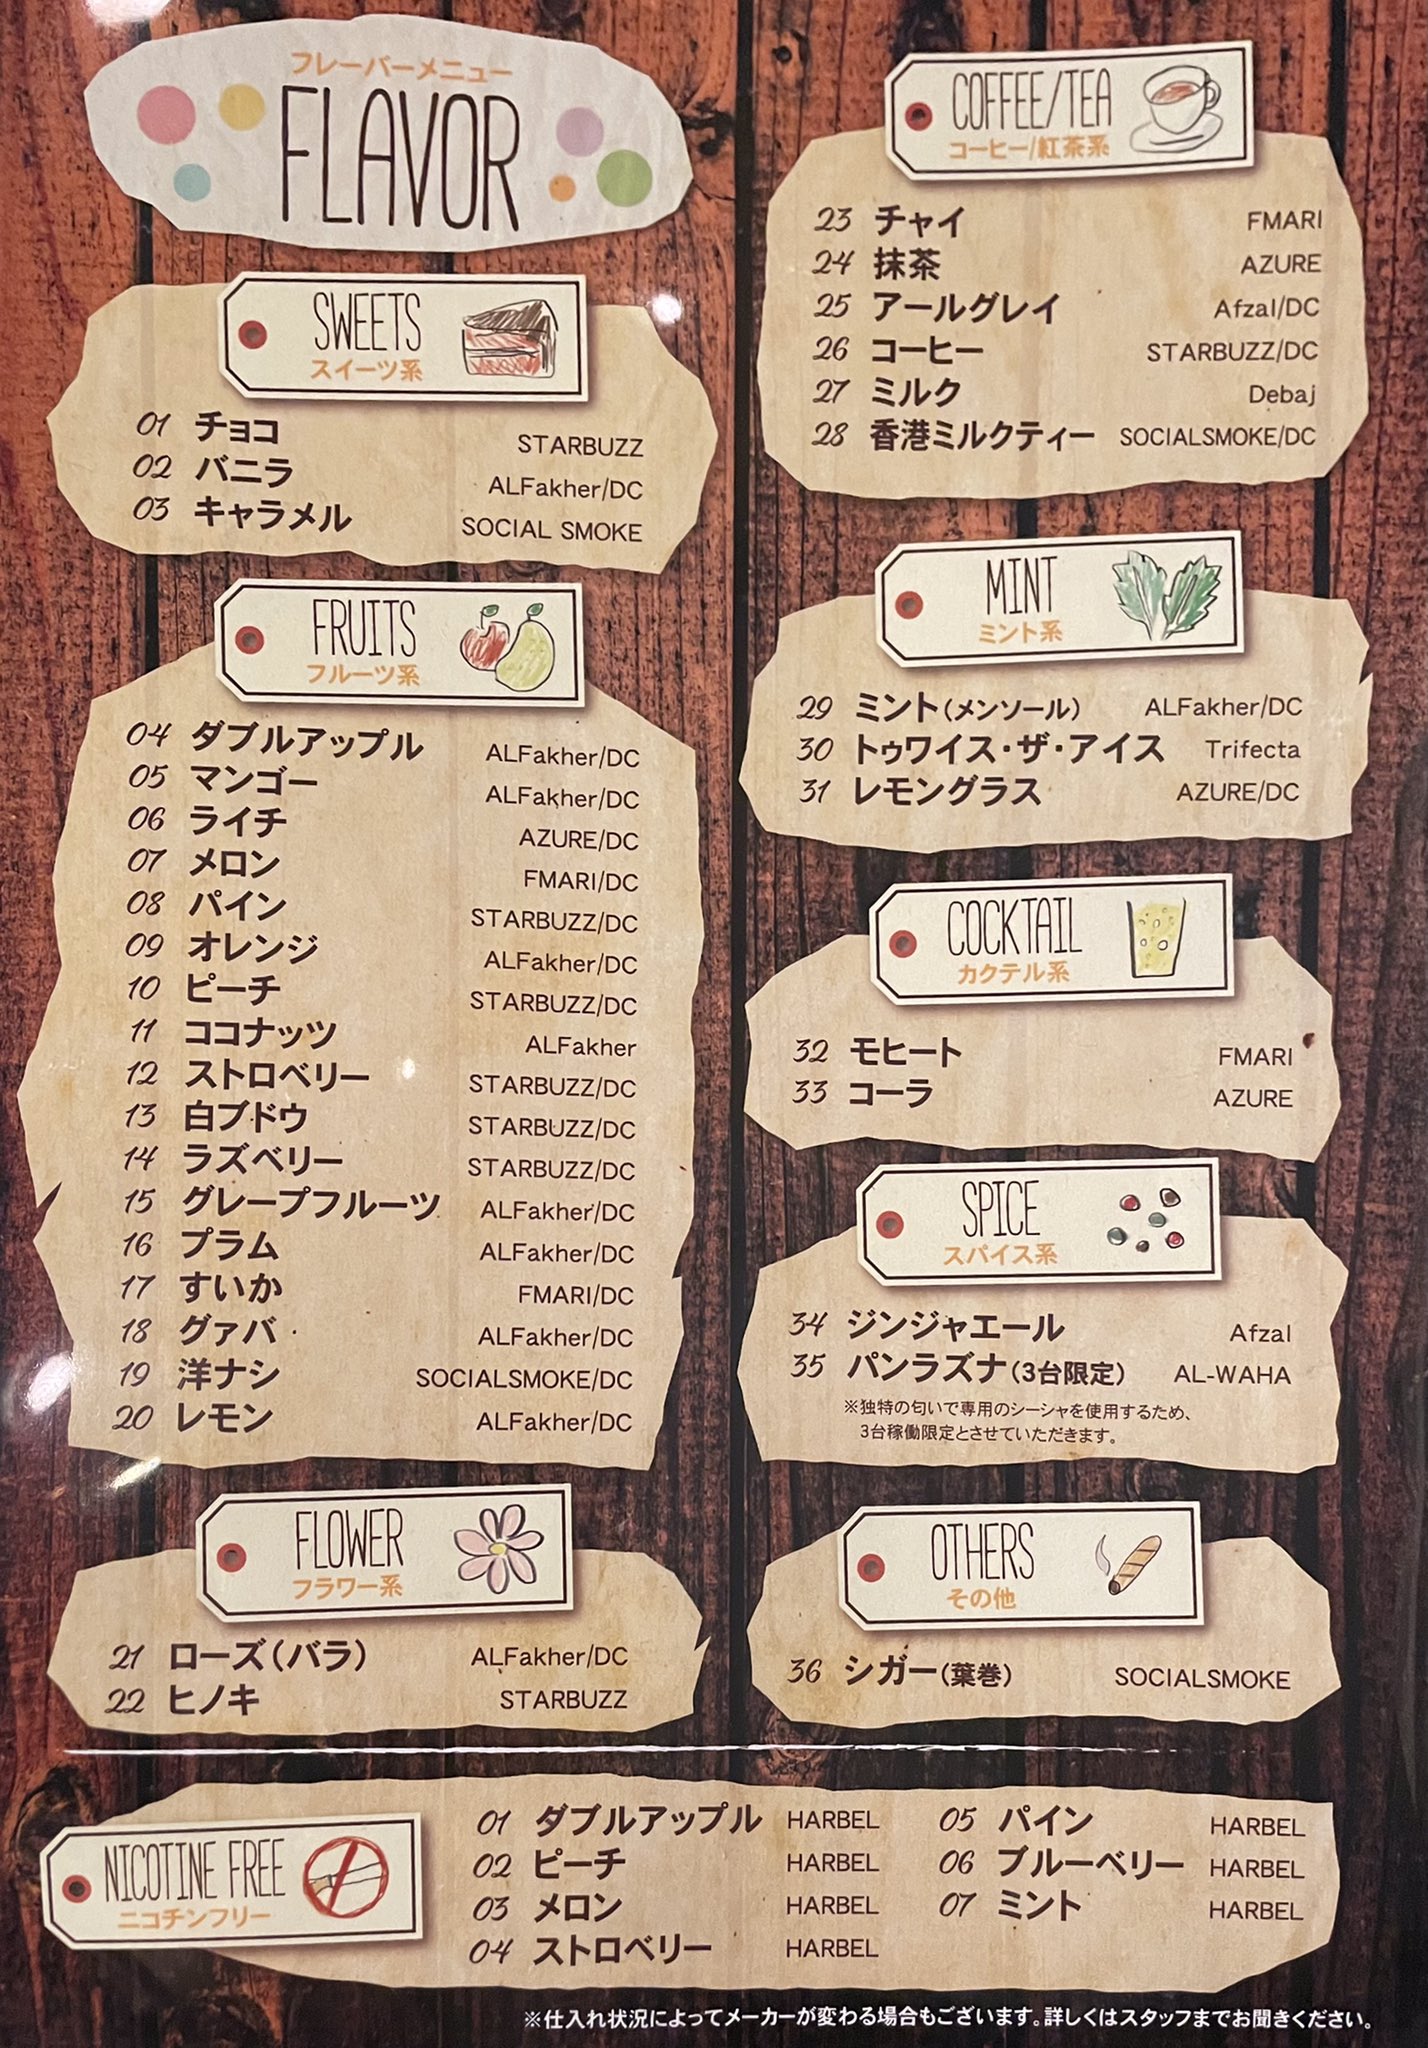 フレーバーメニュー
FLAVOR
SWEETS
スイーツ系
01 チョコ STARBUZZ
02 バニラ ALFakher/DC
03 キャラメル SOCIAL SMOKE
FRUITS
フルーツ系
04 ダブルアップル ALFakher/DC
05 マンゴー ALFakher/DC
06 ライチ AZURE/DC
07 メロン FMARI/DC
08 パイン STARBUZZ/DC
09 オレンジ ALFakher/DC
10 ピーチ STARBUZZ/DC
11 ココナッツ ALFakher
12 ストロベリー STARBUZZ/DC
13 白ブドウ STARBUZZ/DC
14 ラズベリー STARBUZZ/DC
15 グレープフルーツ ALFakher/DC
16 プラム ALFakher/DC
17 すいか FMARI/DC
18 グァバ ALFakher/DC
19 洋ナシ SOCIALSMOKE/DC
20 レモン ALFakher/DC
FLOWER
フラワー系
21 ローズ(バラ) ALFakher/DC
22 ヒノキ STARBUZZ
COFFEE/TEA
コーヒー/紅茶系
23 チャイ FMARI
24 抹茶 AZURE
25 アールグレイ Afzal/DC
26 コーヒー STARBUZZ/DC
27 ミルク Debaj
28 香港ミルクティー SOCIALSMOKE/DC
MINT
ミント系
29 ミント(メンソール) ALFakher/DC
30 トゥワイス・ザ・アイス Trifecta
31 レモングラス AZURE/DC
COCKTAIL
カクテル系
32 モヒート FMARI
33 コーラ AZURE
SPICE
スパイス系
34 ジンジャエール Afzal
35 パンラズナ(3台限定) AL-WAHA
※独特の匂いで専用のシーシャを使用するため、
3台稼働限定とさせていただきます。
OTHERS
その他
36 シガー(葉巻) SOCIALSMOKE
NICOTINE FREE
ニコチンフリー
01 ダブルアップル HARBEL
02 ピーチ HARBEL
03 メロン HARBEL
04 ストロベリー HARBEL
05 パイン HARBEL
06 ブルーベリー HARBEL
07 ミント HARBEL
※仕入れ状況によってメーカーが変わる場合もございます。詳しくはスタッフまでお聞きください。